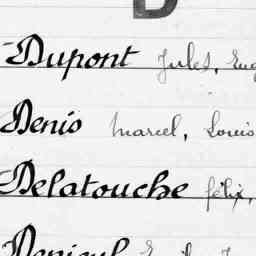 D
Dupont Jules, Eug
Denis Marcel, Louis
Delatouche félix,